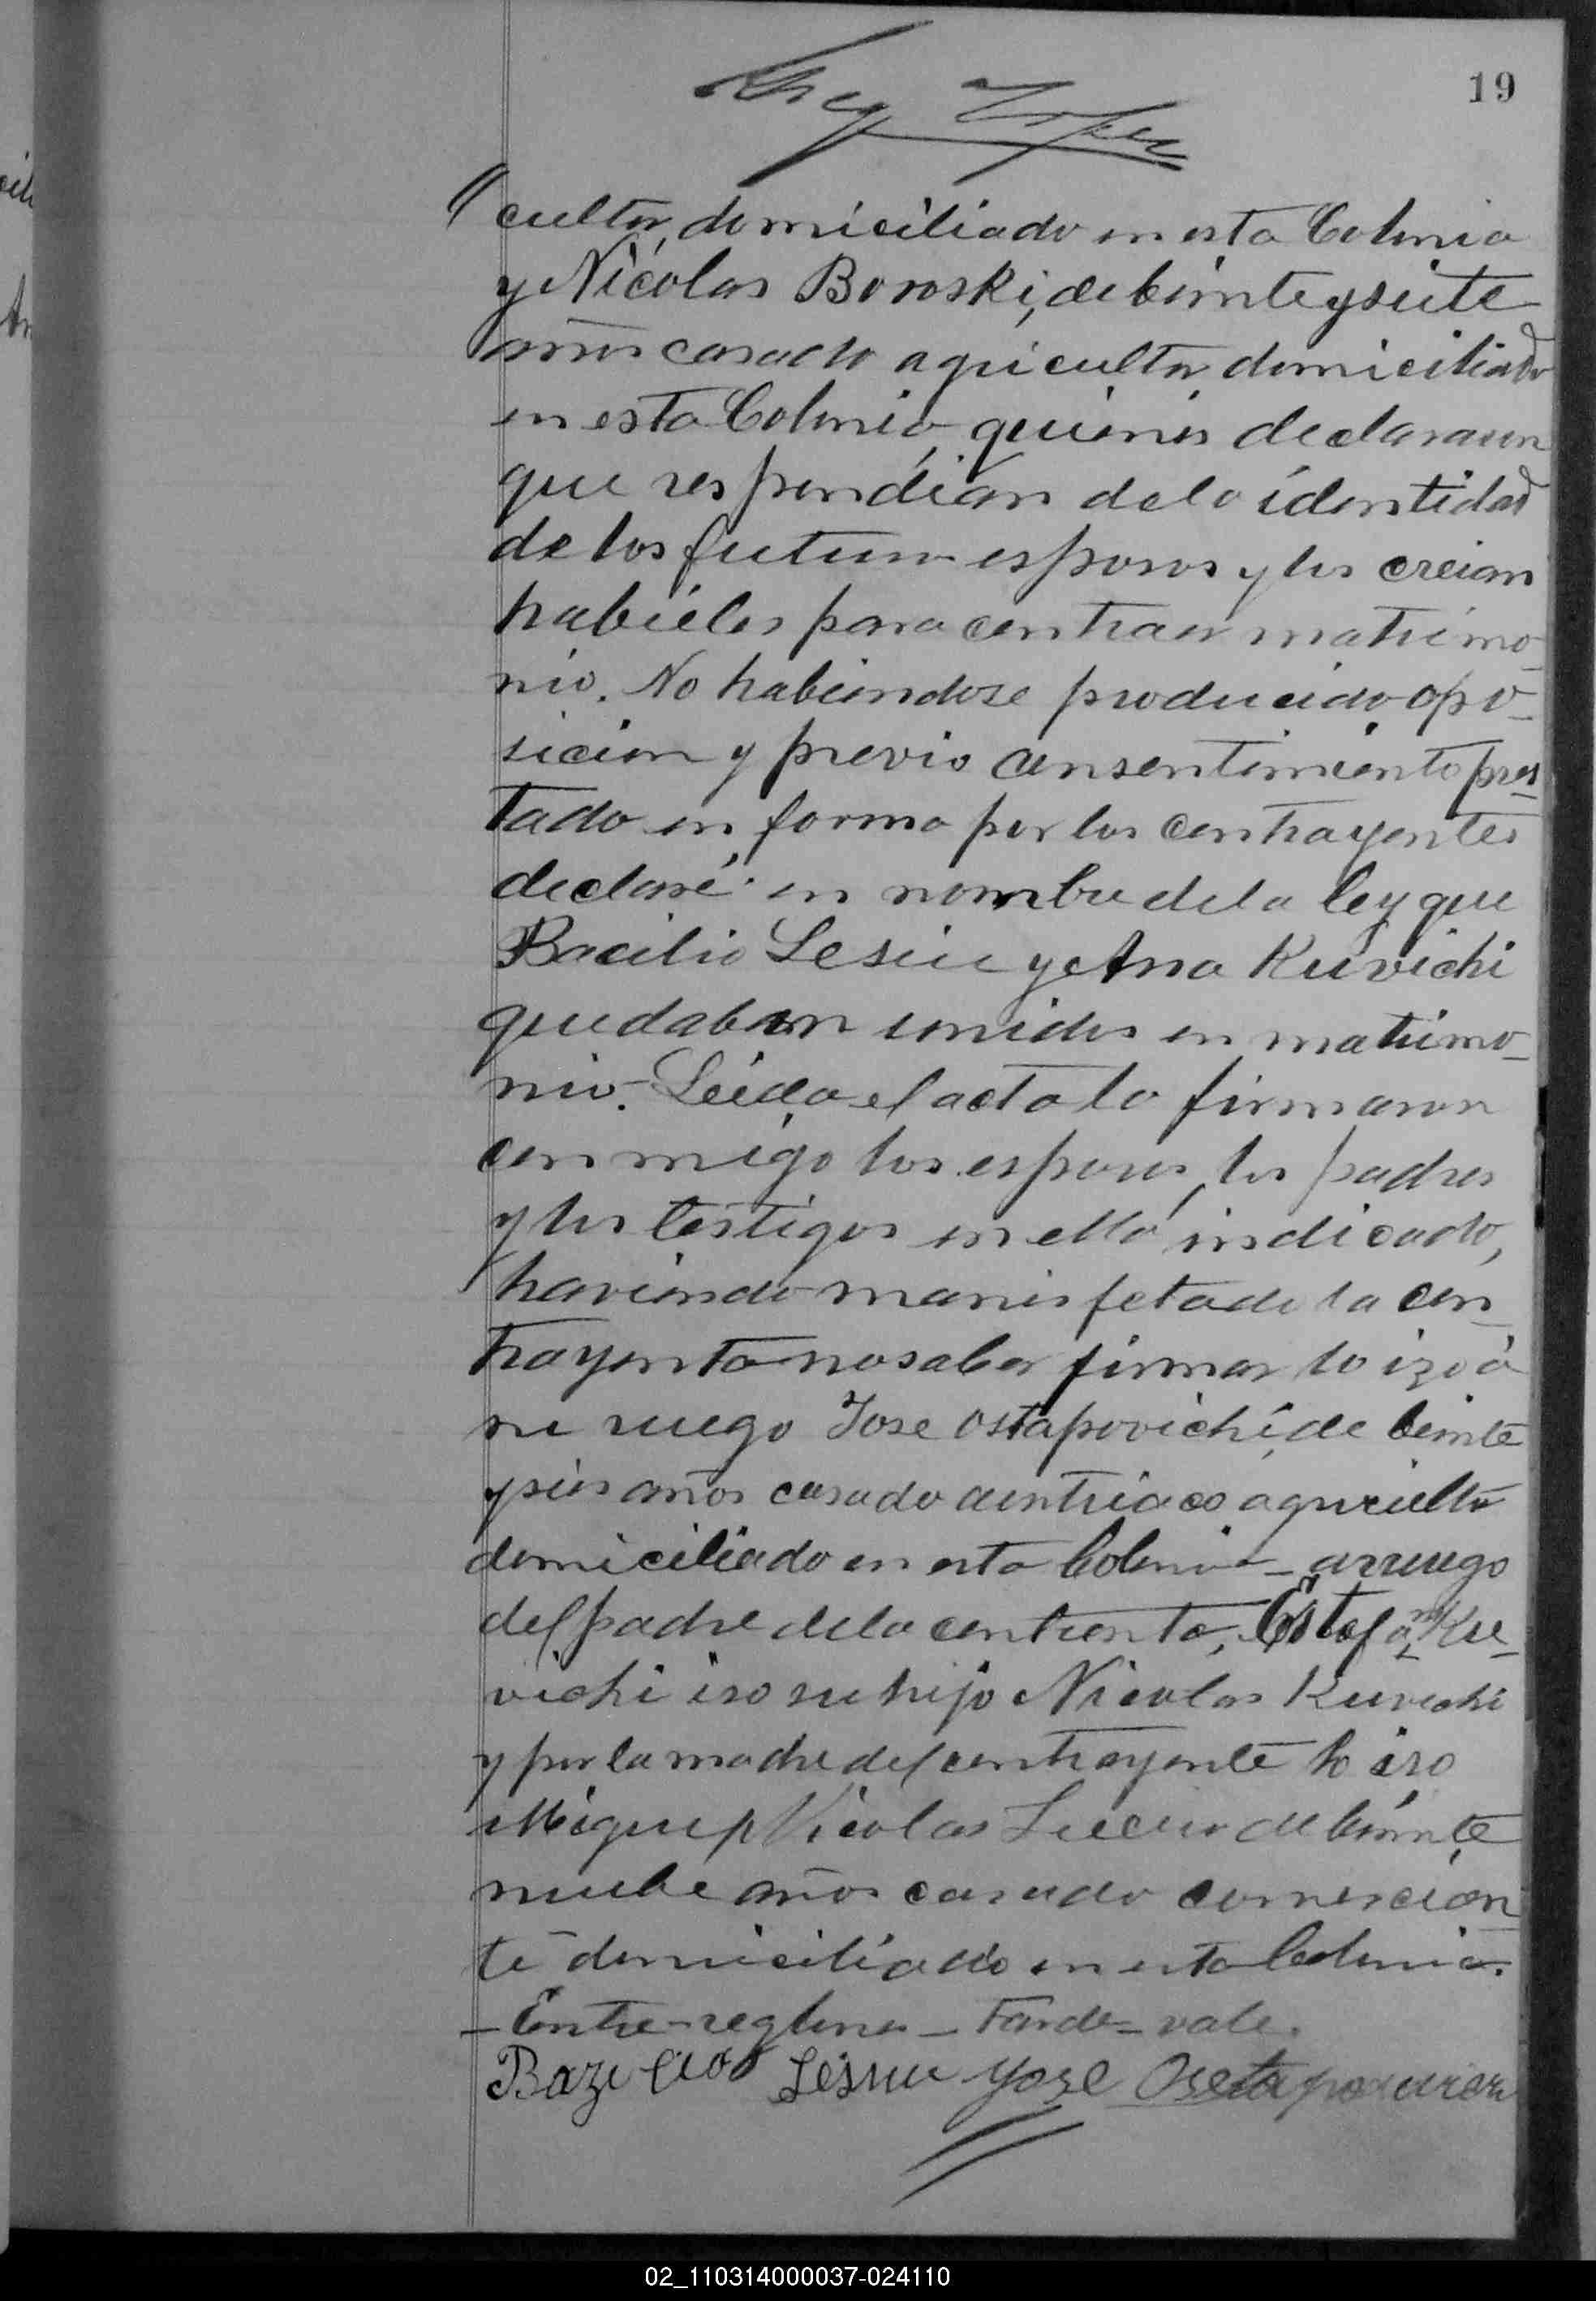 19
cultor, domiciliado en esta Colonia
y Nicolas Boroski, de beinte y siete
años casado agricultor domiciliado
en esta Colonia, quienes declararon
que respondian de la identidad
de los futuros esposos y los creian
habieles para contraer matrimo-
nio. No habiendose producido opo-
sicion y previo consentimiento pres-
tado en forma por los contrayentes
declaré en nombre de la ley que
Bacilio Lesiu y Ana Kuvichi
quedaban unidos en matrimo-
nio. Leida el acta la firmaron
con migo los esposos, los padres
y los testigos en ella indicado,
haviendo manisfetado la con-
trayenta no saber firmar lo izo a
su ruego Jose Ostapovichi, de beinte
y seis años casado austriaco agricultor
domiciliado en esta Colonia - arruego
del padre de la contrenta, Estefan Ku-
vichi iso su hijo Nicolas Kuvichi
y por la madre del contrayente lo iso
Miguel Nicolas de beinte
nuebe años casado comercian-
te domiciliado en esta Colonia.
- Entre-reglones - Tarde = vale.
Bazilio Lesiuu Yoze
02_110314000037-024110